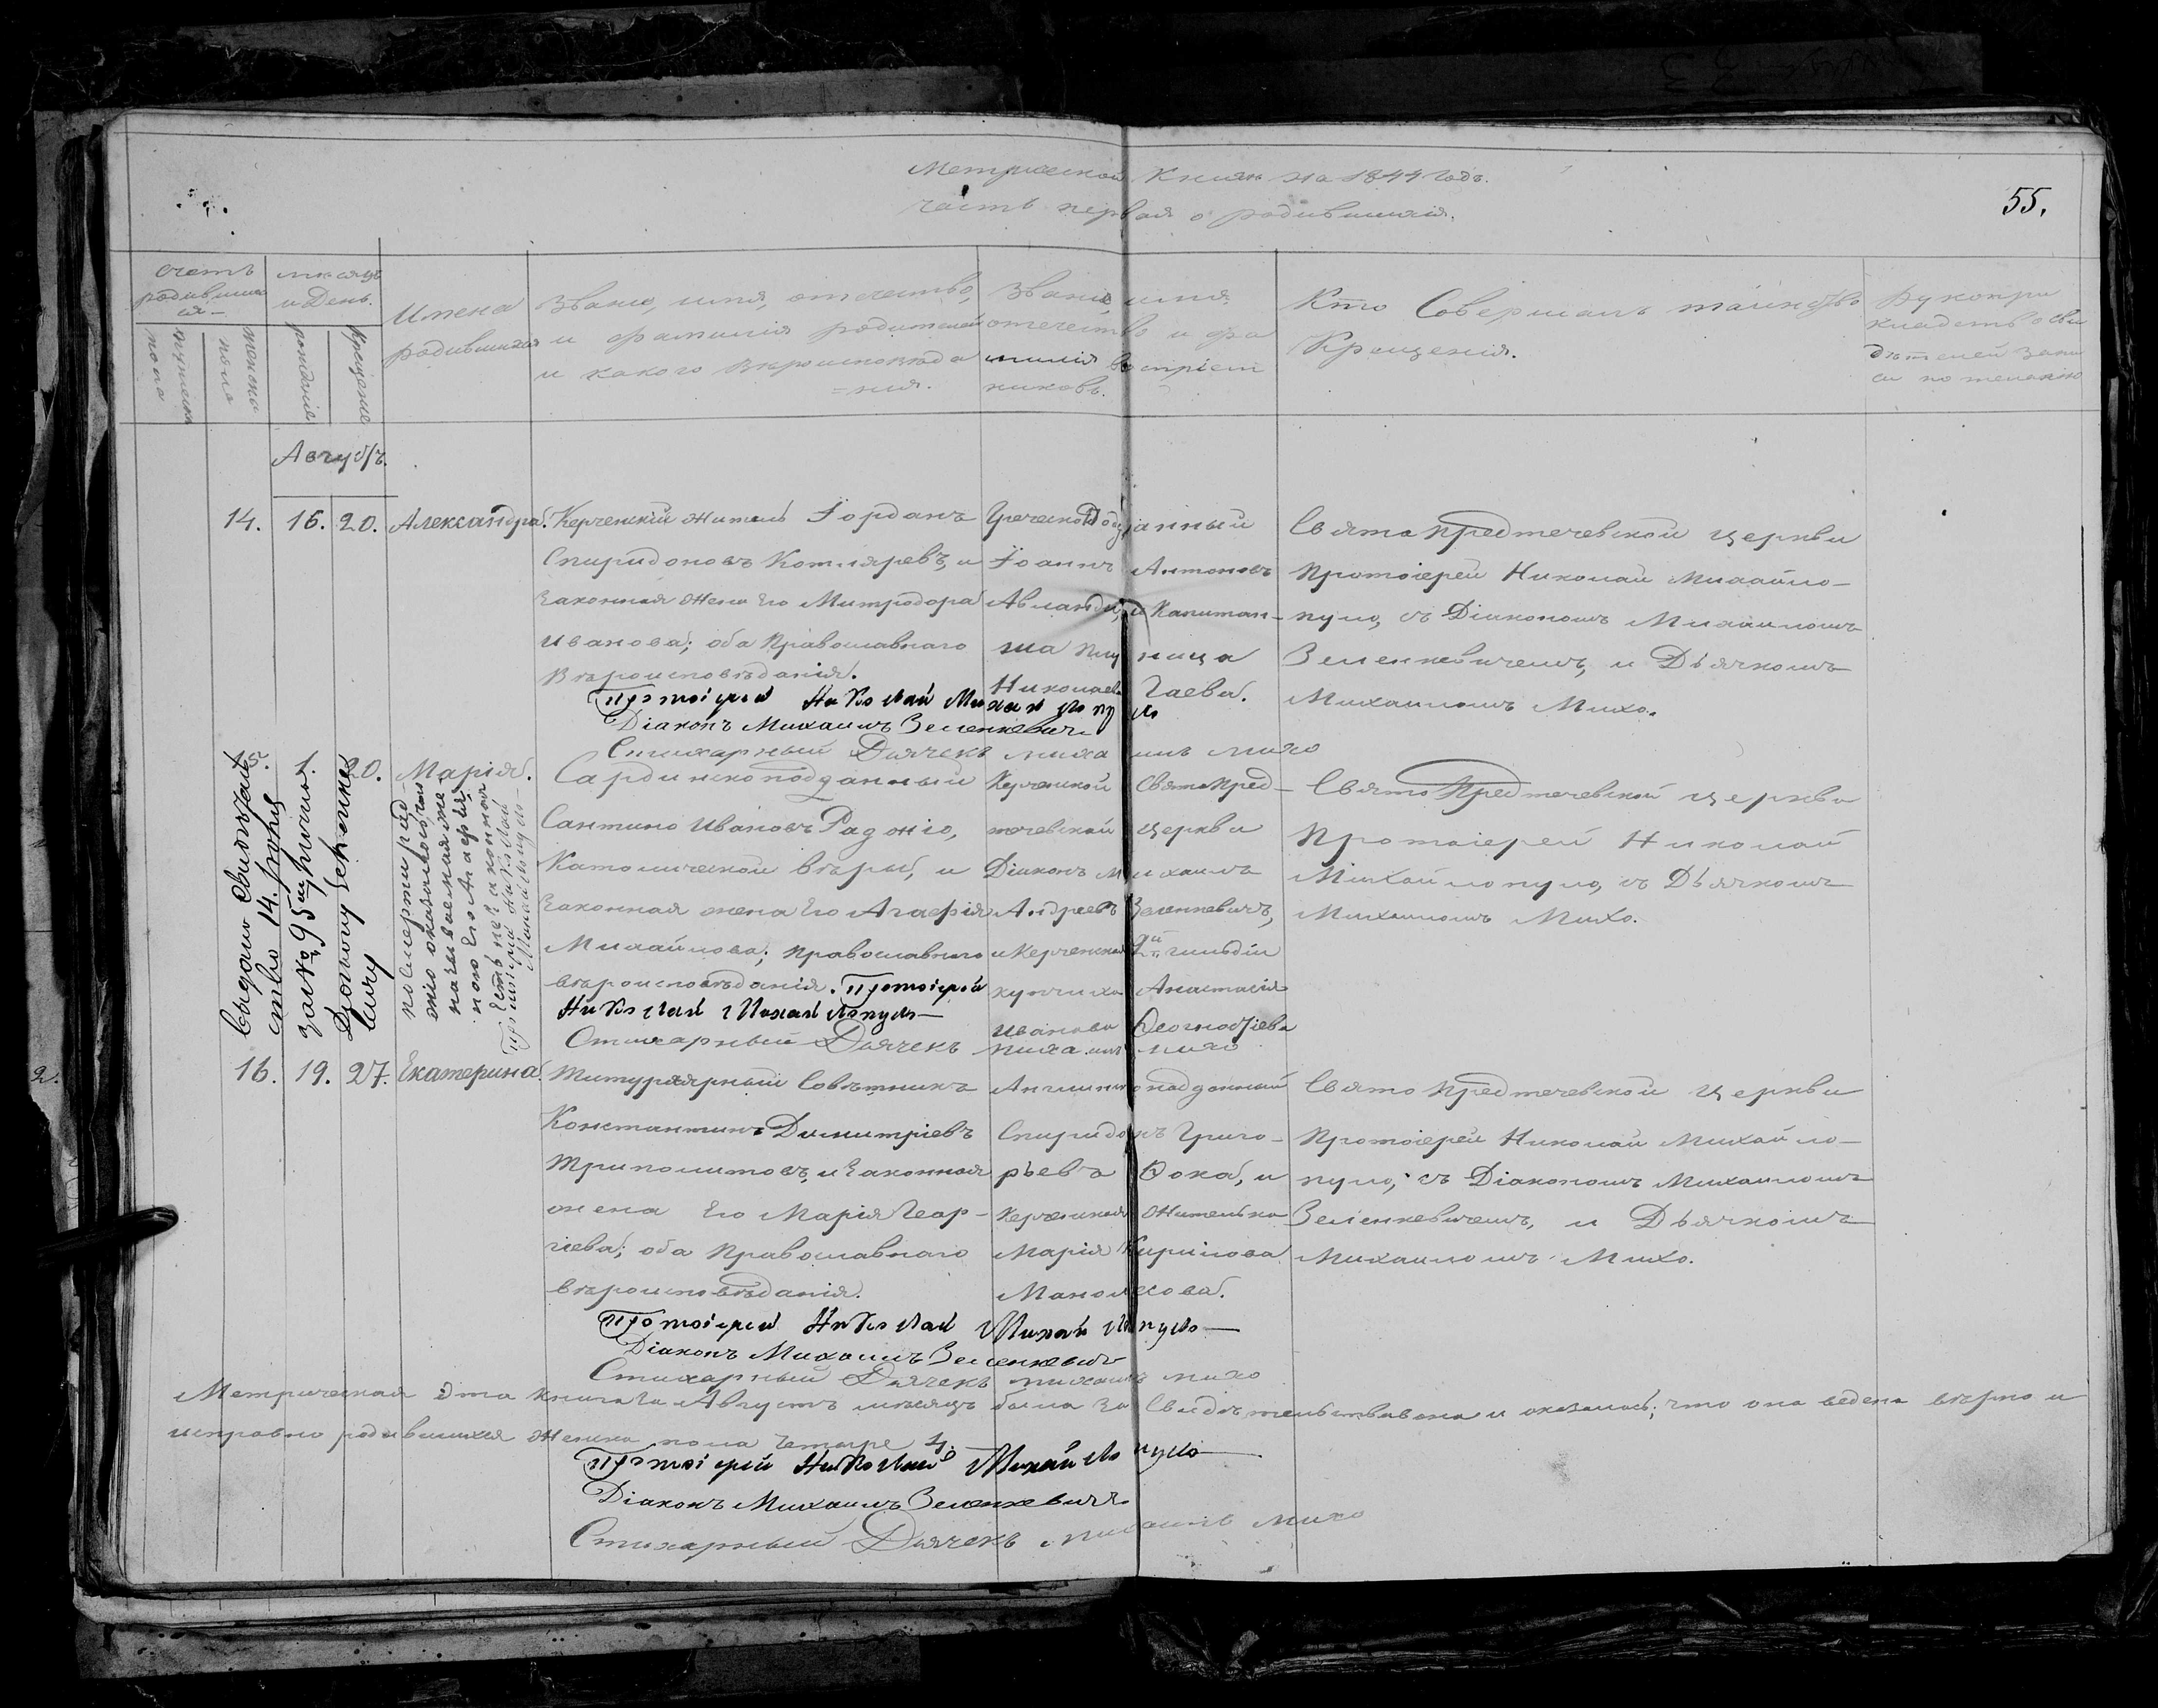 Метрической книги на 1844 годъ.
часть первая о родившихся.
55.
счетъ родившихся
мужеска пола
женска пола
мѣсяцъ и День.
рожденія
крещенія
Имена родившихся
Званіе, имя, отечество, и фамилія родителей и какого вѣроисповѣда=нія.
Званіе, имя, отечество и фамилія воспріемниковъ.
Кто Совершалъ таинство Крещенія.
Рукоприкладство свидѣтелей записи по желанію
Августъ.
14. 16. 20. Александра.
Керченскій житель Іорданъ
Спиридоновъ Котляревъ, и
Законная жена Его Митродора
Иванова; оба Православнаго
Вѣроисповѣданія.
Греческоподданный
Іоаннъ Антоновъ
и Капитан-
ша
Николаева Гаева.
Свято Предтечевской церкви
Протоіерей Николай Михайло-
пуло, съ Діакономъ Михаиломъ
Зеленкевичемъ, и Дьячкомъ
Михаиломъ Михо.
Протоіерей Николай Михайлопуло
Діаконъ Михаилъ Зеленкевичъ
Стихарный Дьячекъ Михаилъ Михо
15. 1. 20. Марія.
Выдано Свидѣтель
ство 14.
за № 95
Діакону Зеленке
вичу
называемая же
ною Его Агафія
есть незаконная
Протоіерей Николай
Михайлопуло
Сардинскоподданный
Сантино Ивановъ Радоніо,
Католической вѣры, и
Законная жена Его Агафія
Михайлова; Православнаго
вѣроисповѣданія. Протоіерей
Николай Михайлопуло
Стихарный Дьячекъ Михаилъ Михо
Керченской Свято Пред-
течевской церкви
Діаконъ Михаилъ
Андреевъ Зеленкевичъ,
и Керченская 2й гильдіи
купчиха Анастасія
Иванова
Свято Предтечевской церкви
Протоіерей Николай
Михайлопуло, съ Дьячкомъ
Михаиломъ Михо.
16. 19. 27. Екатерина.
Титулярный Совѣтникъ
Константинъ Димитріевъ
Триполитовъ, и Законная
жена Его Марія Геор-
гіева; оба Православнаго
вѣроисповѣданія.
Англинскоподданный
Спиридонъ Григо-
рьевъ Фока, и
Керченская Жителька
Марія Кирилова
Манолисова.
Свято Предтечевской церкви
Протоіерей Николай Михайло-
пуло, съ Діакономъ Михаиломъ
Зеленкевичемъ, и Дьячкомъ
Михаиломъ Михо.
Протоіерей Николай Михайлопуло
Діаконъ Михаилъ Зеленкевичъ
Стихарный Дьячекъ Михаилъ Михо
Метрическая Эта книга За Августъ мѣсяцъ была За Свидѣтельствована и оказалось; что она ведена вѣрно и
исправно родившихся Женска пола Четыре 4.
Протоіерей Николай Михайлопуло
Діаконъ Михаилъ Зеленкевичъ
Стихарный Дьячекъ Михаилъ Михо